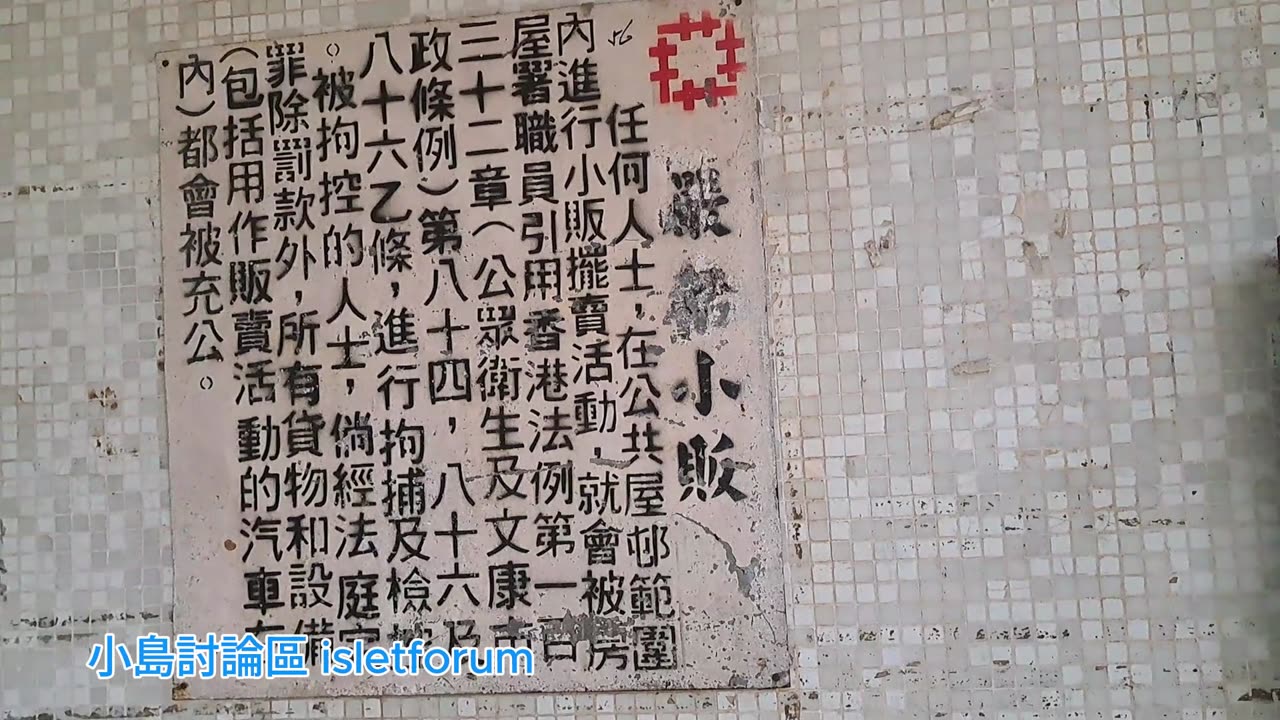 嚴 小販
56
任何人士，在公共屋邨範圍
內進行小販擺賣活動，就會被房
屋署職員引用香港法例第一百
三十二章（公眾衛生及文康市
政條例）第八十四，八十六及
八十六乙條，進行拘捕及檢控
。被拘控的人士，倘經法庭定
罪除罰款外，所有貨物和設備
（包括用作販賣活動的汽車在
內）都會被充公。
小島討論區 isletforum